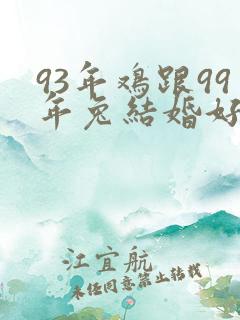 93年鸡跟99
年兔结婚好
江宜航
未经同意禁止转载